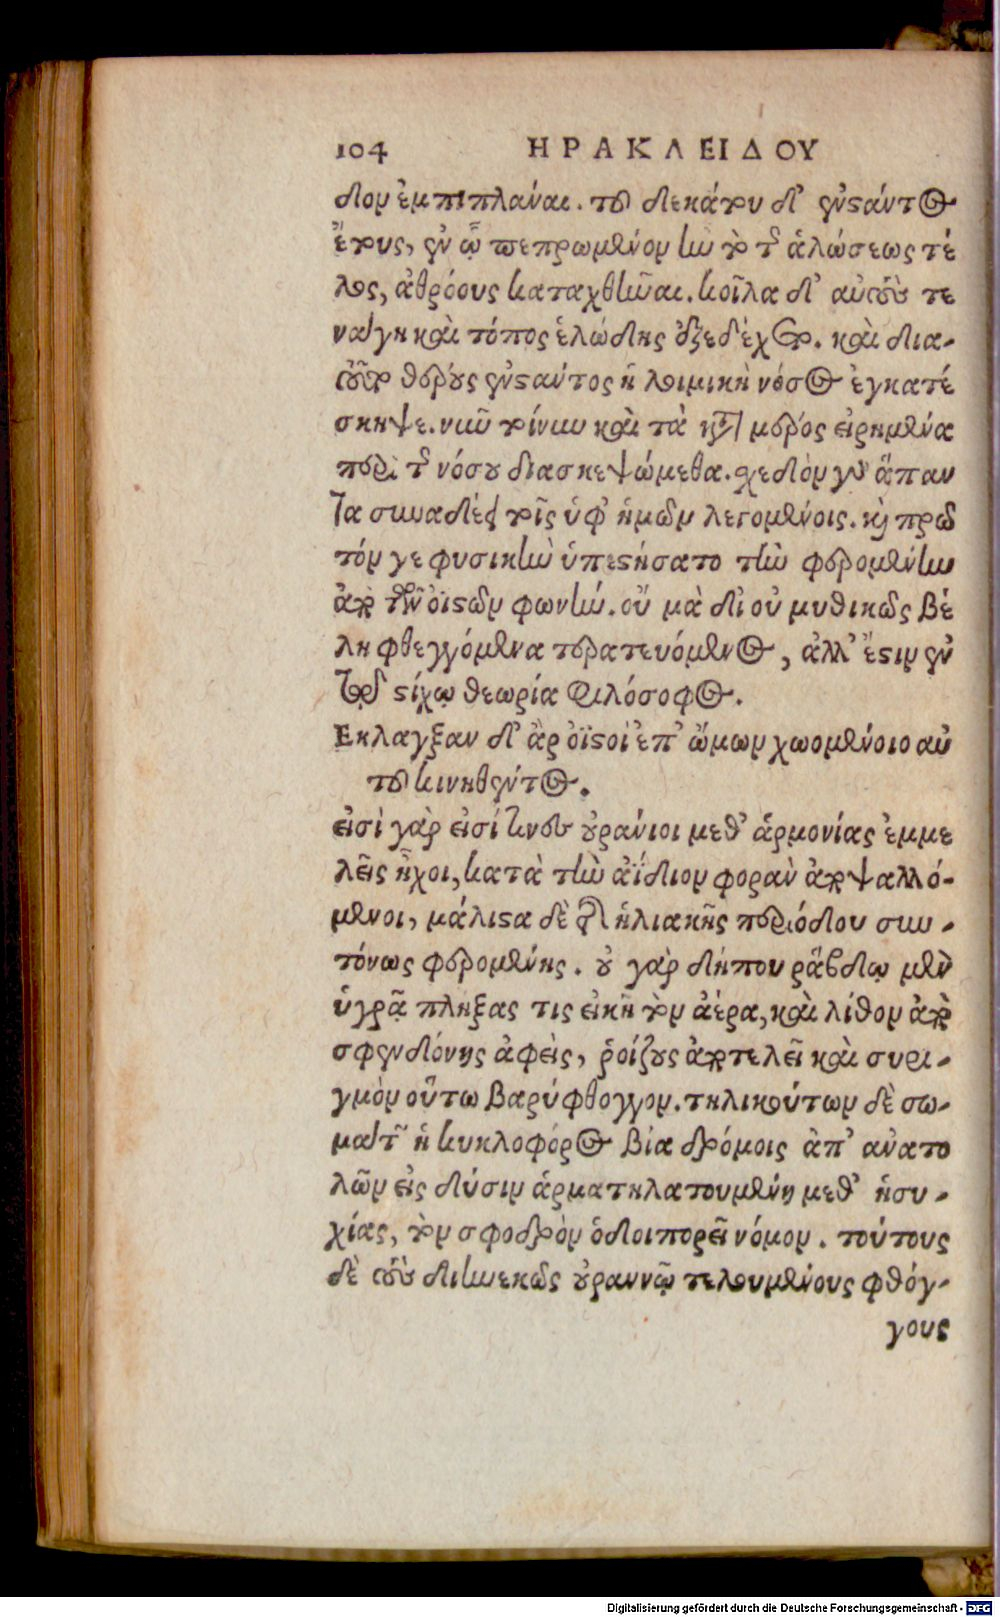 104 ΗΡΑΚΛΕΙΔΟΥ
διον ἐμπιπλάναι. τοῦ δεκάτου δ' ἐνστάντος
ἔτους, ἐν ᾧ πεπρωμένον ἦν τὸ τῆς ἁλώσεως τέ
λος, ἀθρόους καταχθῆναι. κοῖλα δ' αὐτοὺς τε
νάγη καὶ τόπος ἑλώδης ἐξεδέχετο. καὶ δια-
τοῦτο θέρους ἐνστάντος ἡ λοιμικὴ νόσος ἐγκατέ
σκηψε. νῦν τοίνυν καὶ τὰ κατὰ μέρος εἰρημένα
περὶ τῆς νόσου διασκεψώμεθα. σχεδὸν γοῦν ἅπαν
τα συνᾴδει τοῖς ὑφ' ἡμῶν λεγομένοις. καὶ πρῶ
τόν γε φυσικὴν ὑπεστήσατο τὴν φερομένην
ἀπὸ τῶν ὀϊστῶν φωνήν. οὔ μὰ δι' οὐ μυθικῶς βέ
λη φθεγγόμενα τερατευόμενος, ἀλλ' ἔστιν ἐν
τῷ στίχῳ θεωρία φιλόσοφος.
Εκλαγξαν δ' ἂρ ὀϊστοὶ ἐπ' ὤμων χωομένοιο αὐ
τοῦ κινηθέντος.
εἰσὶ γὰρ εἰσί τινες οὐράνιοι μεθ' ἁρμονίας ἐμμε
λεῖς ἦχοι, κατὰ τὴν ἀΐδιον φορὰν ἀποψαλλό-
μενοι, μάλιστα δὲ τῆς ἡλιακῆς περιόδου συν-
τόνως φερομένης. οὐ γὰρ δήπου ῥάβδῳ μὲν
ὑγρᾷ πλήξας τις εἰκῆ τὸν ἀέρα, καὶ λίθον ἀπὸ
σφενδόνης ἀφεὶς, ῥοίζους ἀποτελεῖ καὶ συρι-
γμὸν οὕτω βαρύφθογγον. τηλικούτων δὲ σω-
μάτων ἡ κυκλοφόρος βία δρόμοις ἀπ' ἀνατο
λῶν εἰς δύσιν ἁρματηλατουμένη μεθ' ἡσυ-
χίας, τὸν σφοδρὸν ὁδοιπορεῖ νόμον. τούτους
δὲ τοὺς διηνεκῶς οὐρανῷ τελουμένους φθόγ-
γους
Digitalisierung gefördert durch die Deutsche Forschungsgemeinschaft - DFG